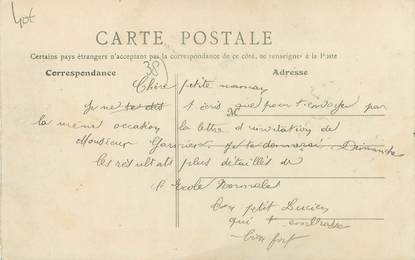 Lot
CARTE POSTALE
Certains pays étrangers n'acceptant pas la correspondance de ce côté, se renseigner à la Poste
Correspondance
Adresse
38)
Chère petite maman
Je ne te dis t'écris que pour t'envoyer par
la même occation la lettre d'invitation de
M
Monsieur Garnier je te donnerai Dimanche
les résultats plus détaillés de
l'Ecole Normale
Ton petit Lucien
qui t'embrasse
bien fort